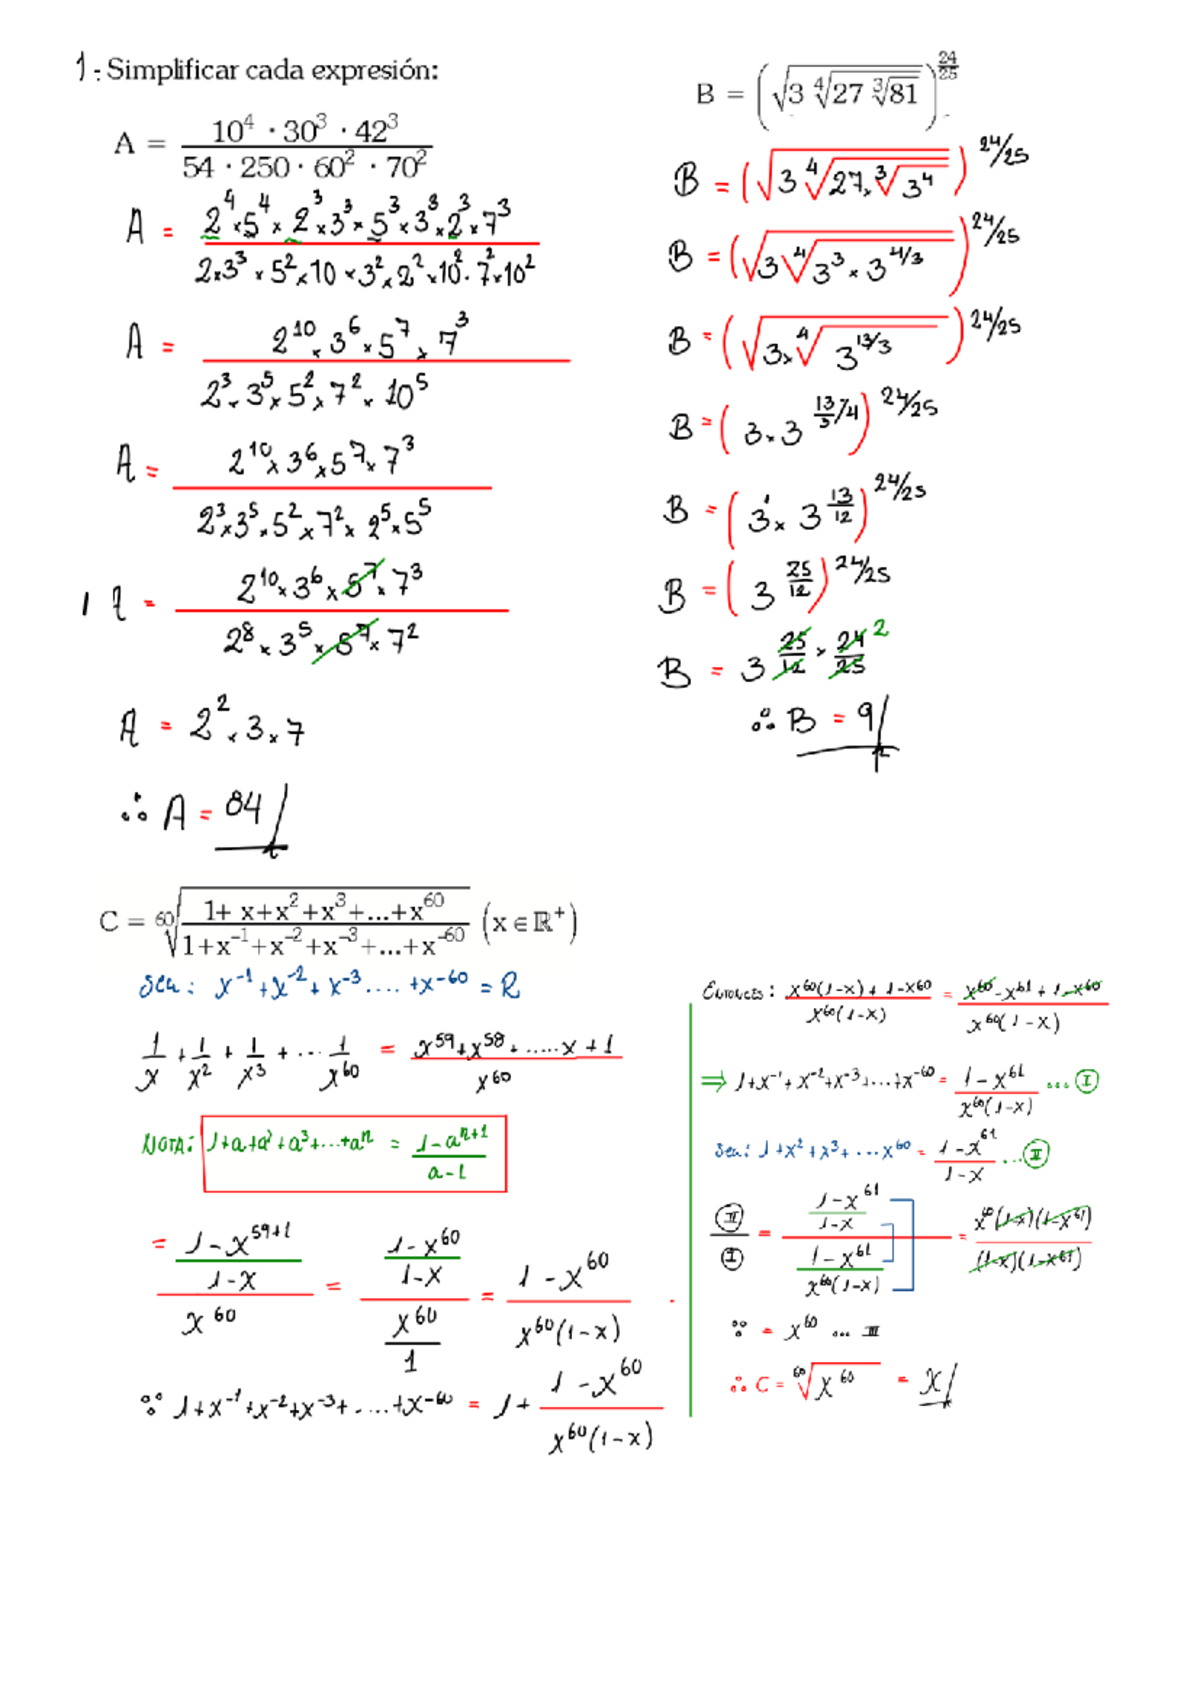 1.- Simplificar cada expresión:
A = (10^4 · 30^3 · 42^3) / (54 · 250 · 60^2 · 70^2)
A = (2^4 × 5^4 × 2^3 × 3^3 × 5^3 × 3^3 × 2^3 × 7^3) / (2 × 3^3 × 5^2 × 10 × 3^2 × 2^2 × 10^2 · 7^2 × 10^2)
A = (2^10 × 3^6 × 5^7 × 7^3) / (2^3 × 3^5 × 5^2 × 7^2 × 10^5)
A = (2^10 × 3^6 × 5^7 × 7^3) / (2^3 × 3^5 × 5^2 × 7^2 × 2^5 × 5^5)
A = (2^10 × 3^6 × 5^7 × 7^3) / (2^8 × 3^5 × 5^7 × 7^2)
A = 2^2 × 3 × 7
∴ A = 84
B = (√(3 ∜(27 ∛81)))^(24/25)
B = (√(3 ∜(27 × ∛(3^4))))^(24/25)
B = (√(3 ∜(3^3 × 3^(4/3))))^(24/25)
B = (√(3 × ∜(3^(13/3))))^(24/25)
B = (3 × 3^(13/3/4))^(24/25)
B = (3^1 × 3^(13/12))^(24/25)
B = (3^(25/12))^(24/25)
B = 3^(25/12 × 24/25) 2
∴ B = 9
C = ⁶⁰√((1+x+x^2+x^3+...+x^60) / (1+x^-1+x^-2+x^-3+...+x^-60)) (x ∈ ℝ^+)
Sea: x^-1 + x^-2 + x^-3 .... + x^-60 = R
1/x + 1/x^2 + 1/x^3 + ... 1/x^60 = (x^59 + x^58 + ..... x + 1) / x^60
NOTA: 1+a+a^2+a^3+...+a^n = (1-a^(n+1)) / (a-1)
= ((1-x^(59+1)) / (1-x)) / x^60 = ((1-x^60) / (1-x)) / (x^60 / 1) = (1-x^60) / (x^60(1-x))
∵ 1+x^-1+x^-2+x^-3+....+x^-60 = 1 + (1-x^60) / (x^60(1-x))
Entonces: (x^60(1-x)+1-x^60) / (x^60(1-x)) = (x^60-x^61+1-x^60) / (x^60(1-x))
⇒ 1+x^-1+x^-2+x^-3+...+x^-60 = (1-x^61) / (x^60(1-x)) ... Ⓘ
Sea: 1+x^2+x^3+...x^60 = (1-x^61) / (1-x) ... II
II / I = ((1-x^61) / (1-x)) / ((1-x^61) / (x^60(1-x))) = (x^60(1-x)(1-x^61)) / ((1-x)(1-x^61))
∵ = x^60 ... III
∴ C = ⁶⁰√(x^60) = x